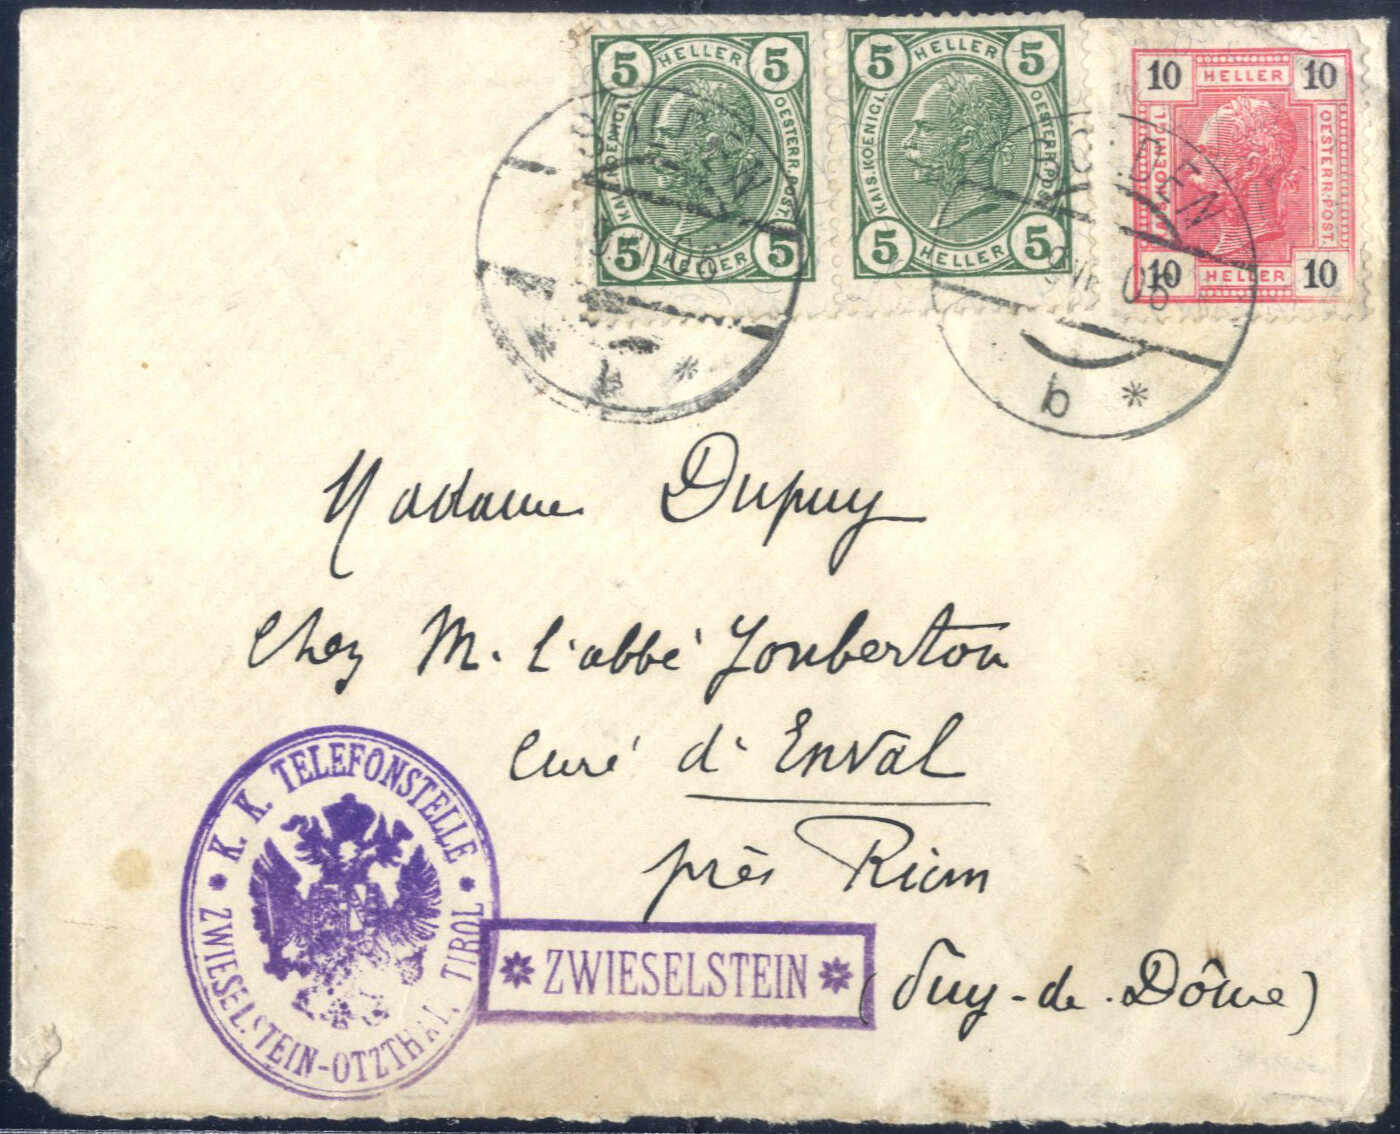 5 HELLER 5
KAIS. KOENIGL. OESTERR. POST.
5 HELLER 5
5 HELLER 5
KAIS. KOENIGL. OESTERR. POST.
5 HELLER 5
10 HELLER 10
KOENIGL. OESTERR. POST.
10 HELLER 10
b
Madame Dupuy
Chez M. l'abbé Jouberton
Curé d'Enval
près Riom
(Puy-de-Dôme)
K. K. TELEFONSTELLE
ZWIESELSTEIN-OTZTHAL TIROL
ZWIESELSTEIN